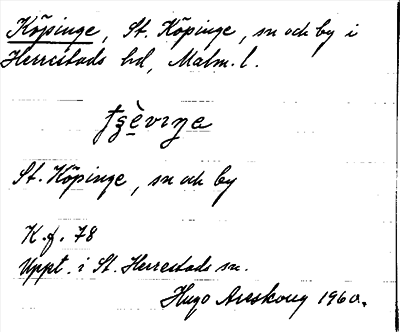 Köpinge, St. Köpinge, sn och by i
Herrestads hd, Malm. l.
St. Köpinge, sn och by
K. f. 78
Uppt. i St. Herrestads sn.
Hugo Areskoug 1960.